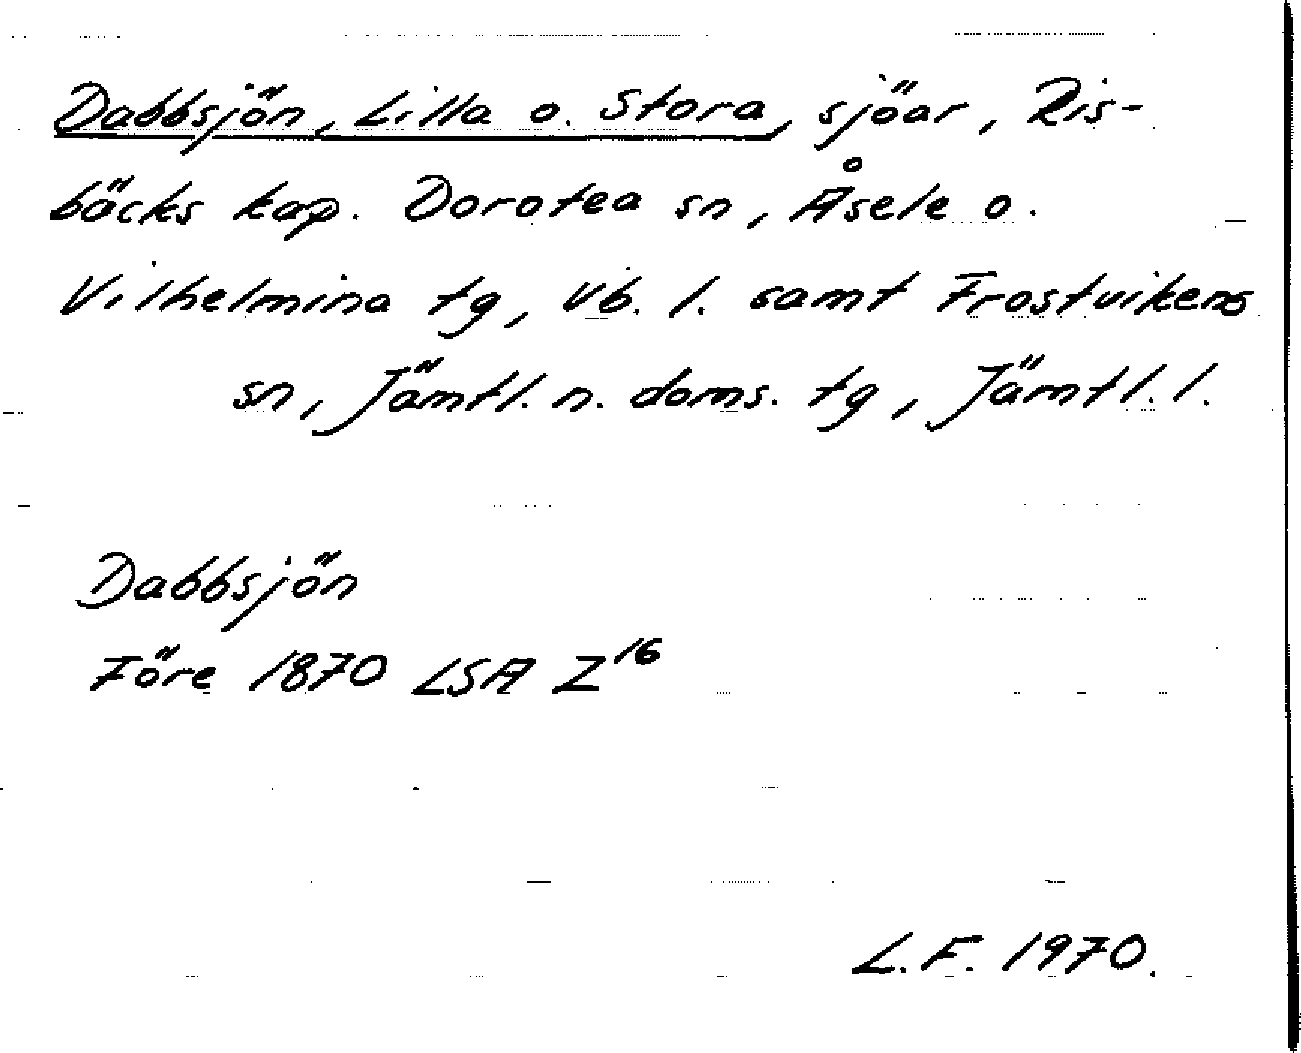 Dabbsjön, Lilla o. Stora, sjöar, Ris-
bäcks kap. Dorotea sn, Åsele o.
Vilhelmina tg, Vb. l. samt Frostvikens
sn, Jämtl. n. doms. tg, Jämtl. l.
Dabbsjön
Före 1870 LSA Z16
L.F. 1970.